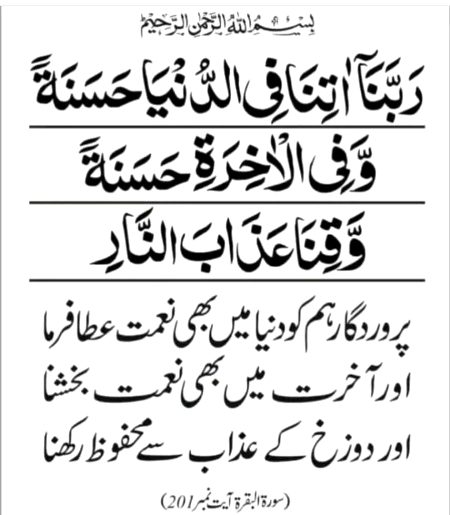 بِسْمِ اللهِ الرَّحْمٰنِ الرَّحِيْمِ
رَبَّنَآ اٰتِنَا فِى الدُّنْيَا حَسَنَةً
وَّفِى الْاٰخِرَةِ حَسَنَةً
وَّقِنَا عَذَابَ النَّارِ
پروردگار ہم کو دنیا میں بھی نعمت عطا فرما
اور آخرت میں بھی نعمت بخشنا
اور دوزخ کے عذاب سے محفوظ رکھنا
(سورۃ البقرۃ آیت نمبر 201)